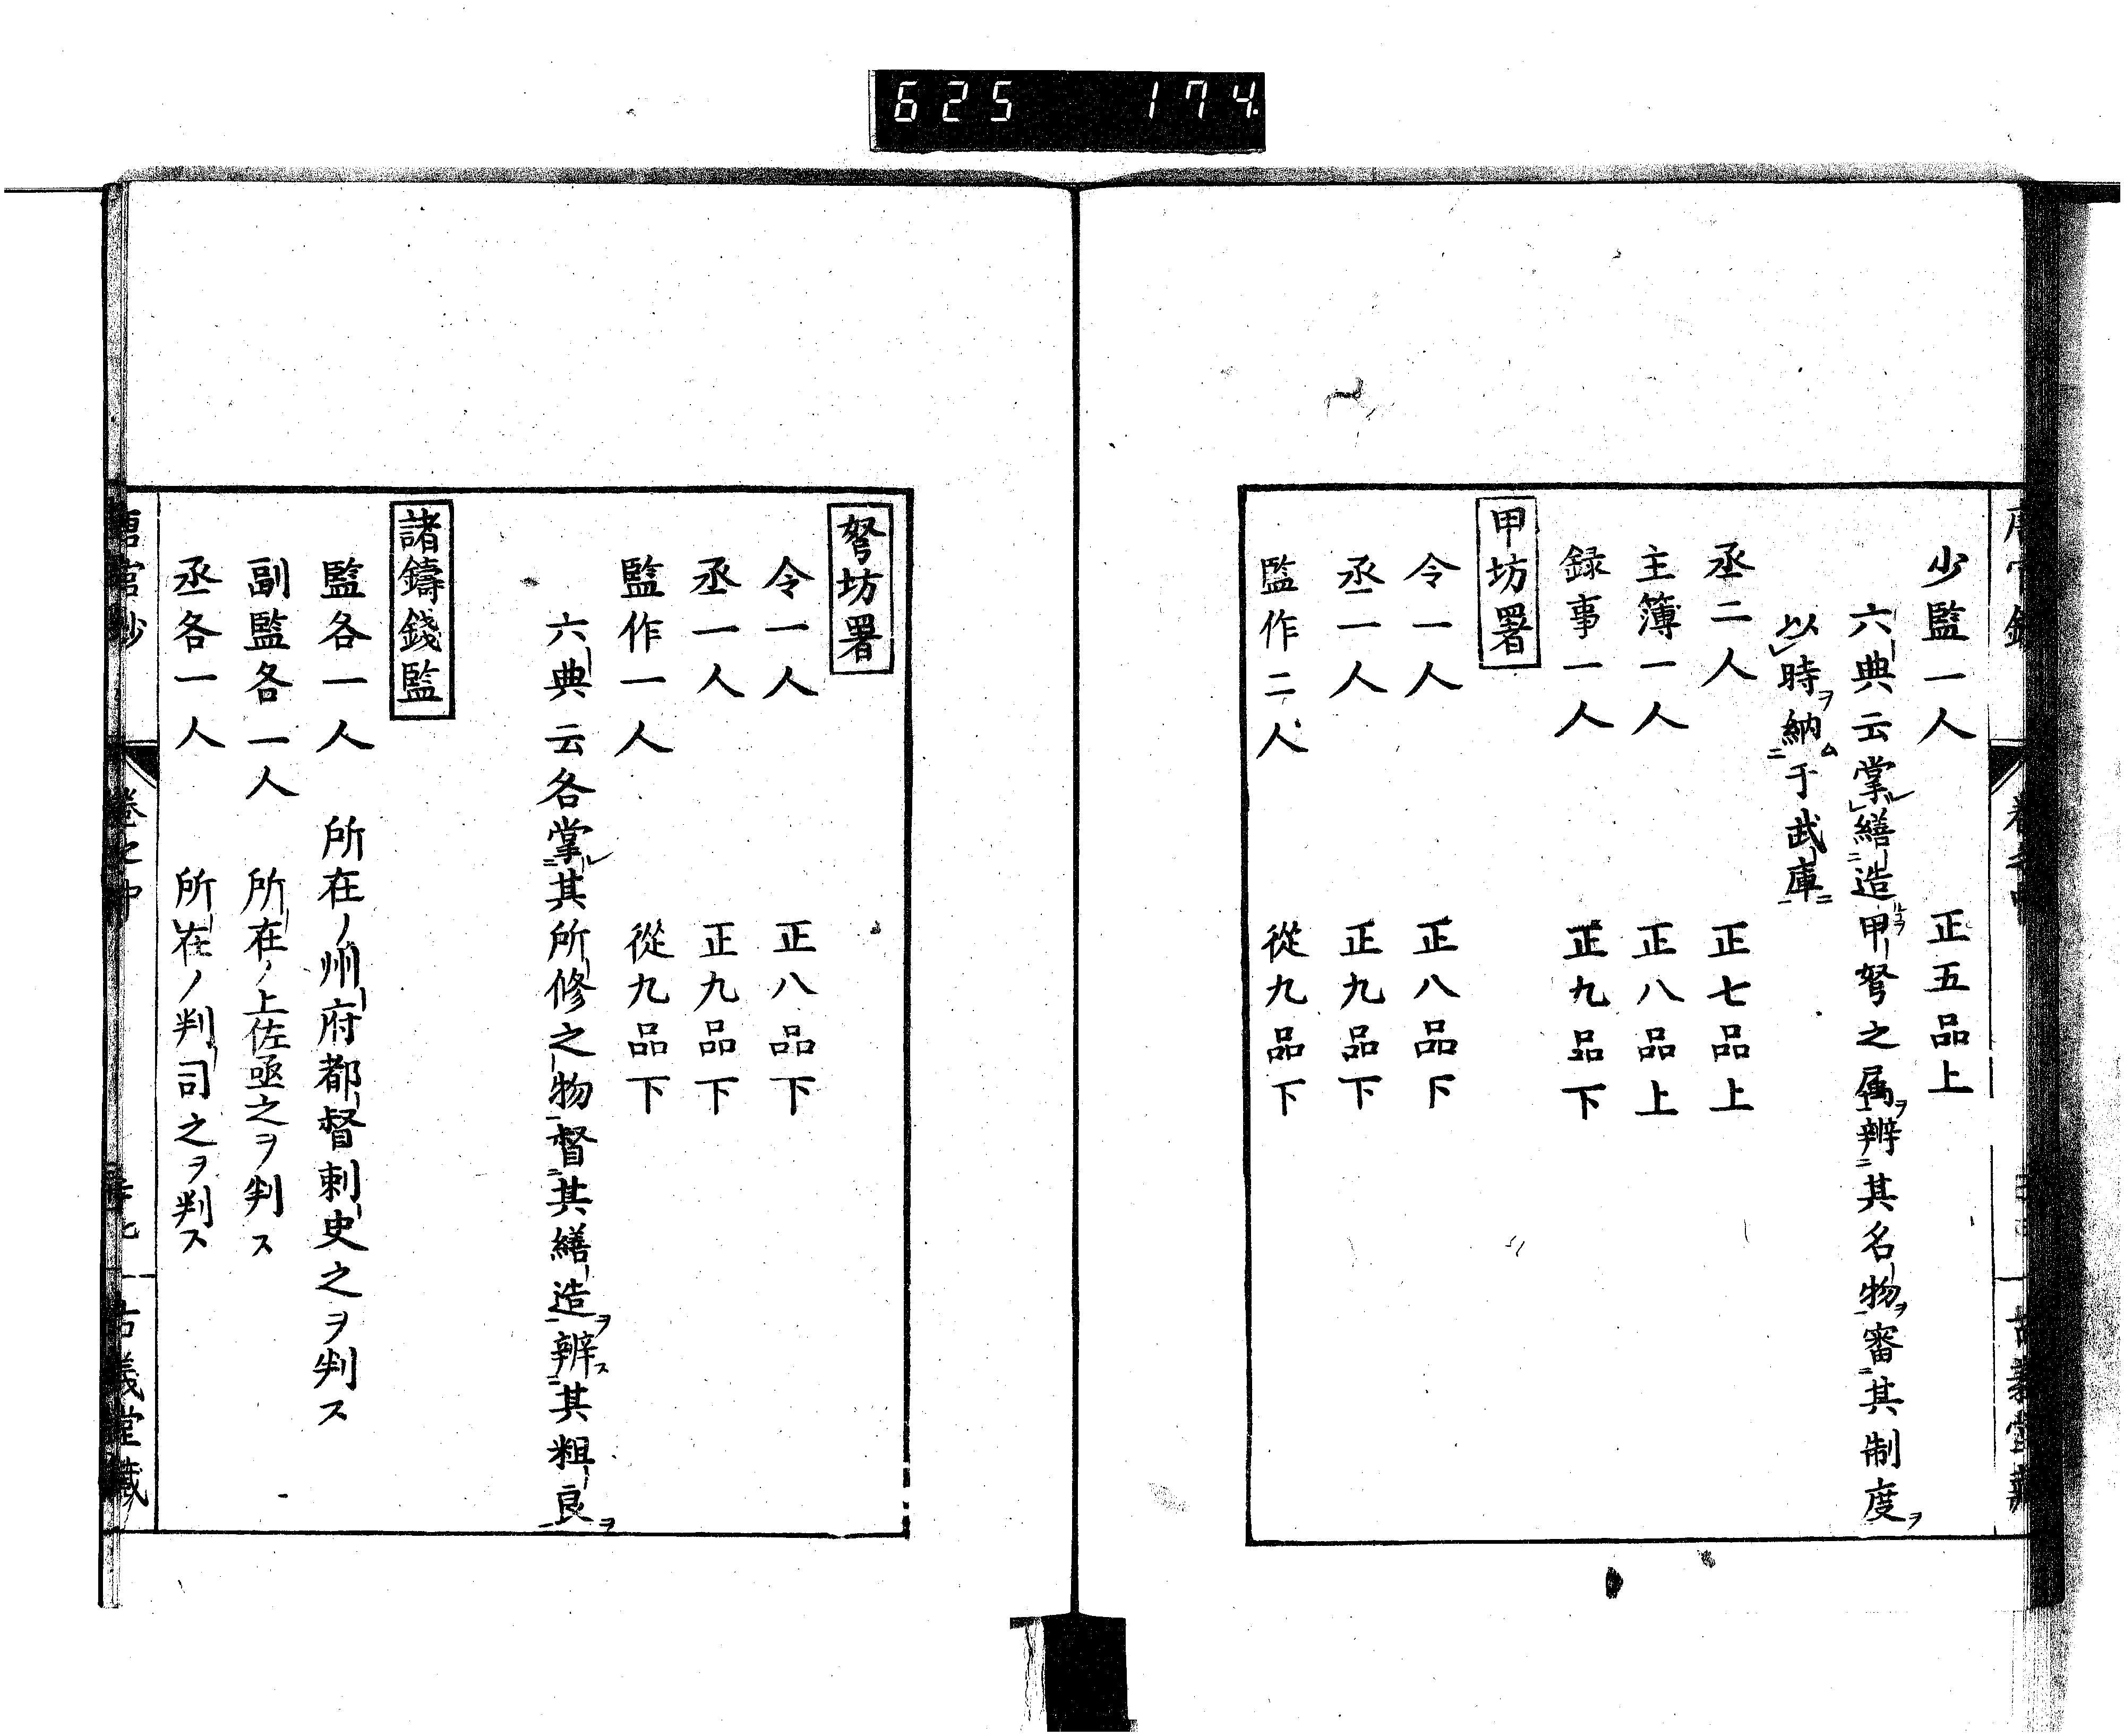 625 174
少監一人 正五品上
六典云掌繕造甲弩之属辨其名物審其制度
以時納于武庫
丞二人 正七品上
主簿一人 正八品上
録事一人 正九品下
甲坊署
令一人 正八品下
丞一人 正九品下
監作二人 從九品下
弩坊署
令一人 正八品下
丞一人 正九品下
監作一人 從九品下
六典云各掌其所修之物督其繕造辨其粗良
諸鑄錢監
監各一人 所在ノ州府都督刺史之ヲ判ス
副監各一人 所在ノ上佐亟之ヲ判ス
丞各一人 所在ノ判司之ヲ判ス
卷之中
古義堂藏